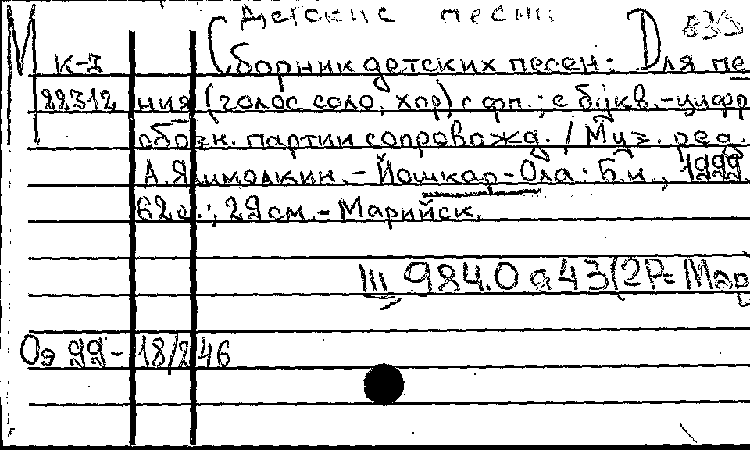 Детские песни
М К-7 Сборник детских песен: Для пе
22312 ния (голос соло, хор) с фп.; с букв.-цифр
обозн. партии сопровожд. / Муз. ред.
А. Яшмолкин. - Йошкар-Ола: Б.и., 1999.
62с.; 29см. - Марийск.
III 984.0 а 43(2Р=Мар
Оэ 99-18/246